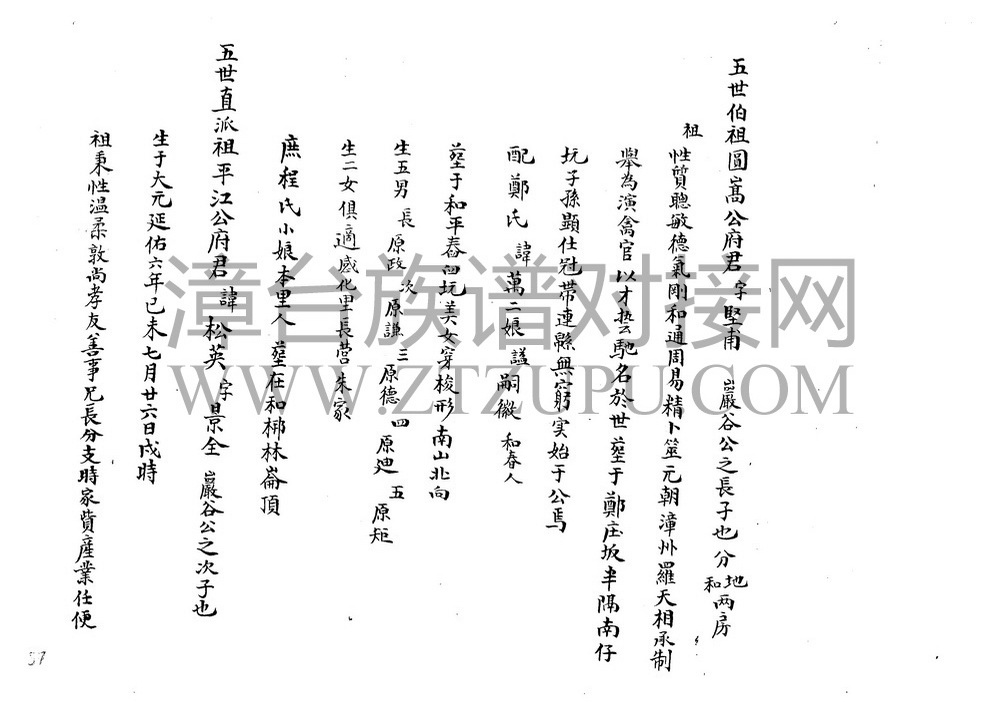 五世伯祖圓嵩公府君 字堅甫 巖谷公之長子也 分地和两房
祖
性質聰敏德氣剛和通周易精卜筮元朝漳州羅天相承制
舉為演禽官以才藝馳名於世塟于鄭庄坂半隅南仔
坑子孫顯仕冠帶連縣無窮实始于公焉
配鄭氏 諱萬二娘 諡嗣徽 和春人
塟于和平舂臼坑美女穿梭形南山北向
生五男 長原政 次原謙 三原德 四原迪 五原矩
生二女俱適感化里長营朱家
庶程氏小娘本里人 塟在和梆林崙頂
五世直派祖平江公府君 諱松英 字景全 巖谷公之次子也
生于大元延佑六年己未七月廿六日戌時
祖秉性温柔敦尚孝友善事兄長分支時家貲產業任便
57
漳台族谱对接网
WWW.ZTZUPU.COM